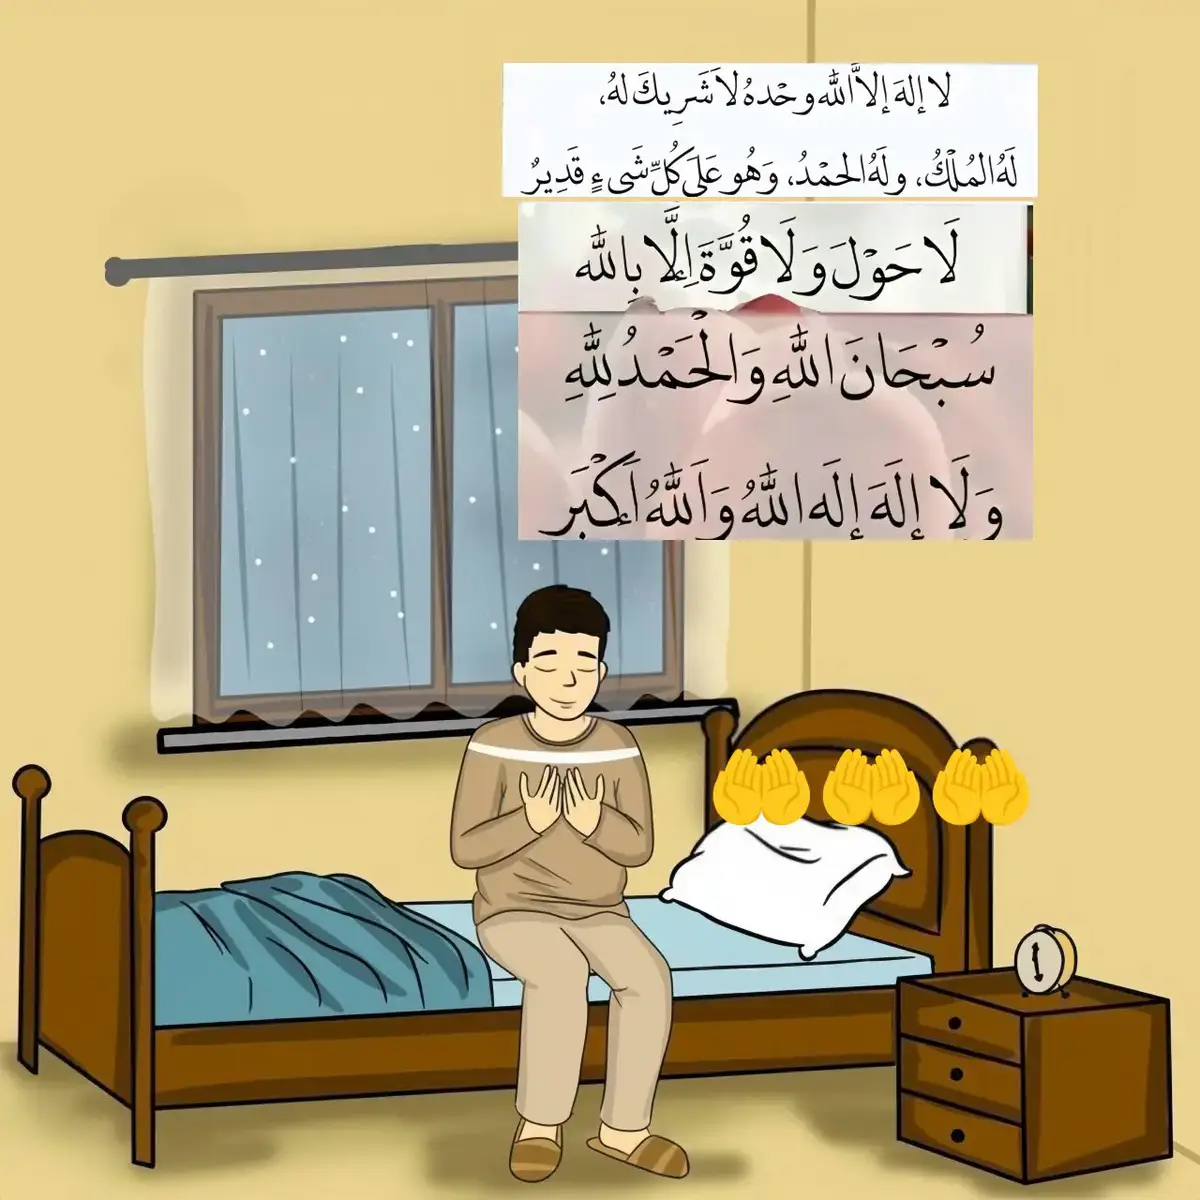 لا إلهَ إلا اللَّه وحْدهُ لاَ شَرِيكَ لهُ،
لَهُ المُلْكُ، ولَهُ الحمْدُ، وَهُو عَلَى كُلِّ شَيءٍ قَدِيرٌ
لَا حَوْلَ وَلَا قُوَّةَ إِلَّا بِاللّٰه
سُبْحَانَ اللّٰهِ وَالْحَمْدُ لِلّٰهِ
وَلَا إِلَهَ إِلَه اللّٰهُ وَاَللّٰهُ اَكْبَر